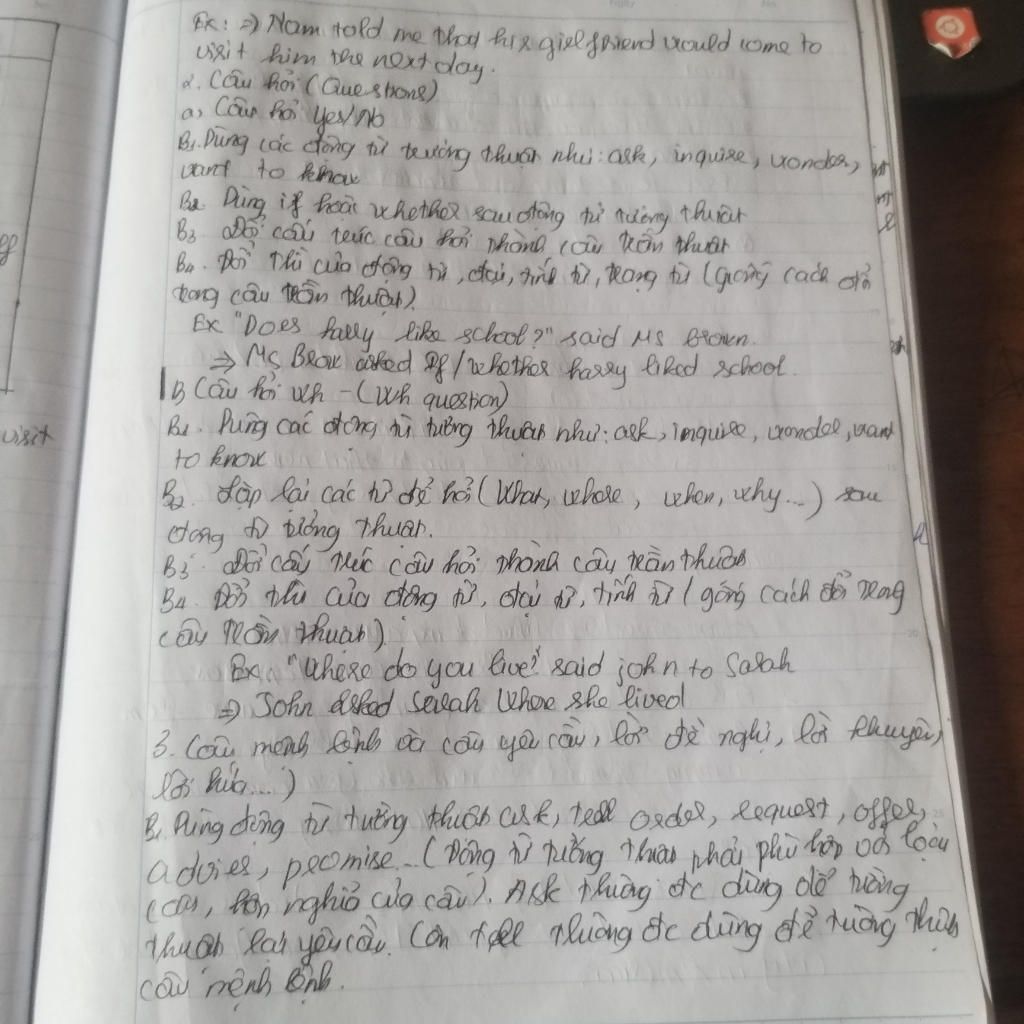 Ex: => Nam told me that his girlfriend would come to
visit him the next day.
2. Câu hỏi (Questions)
a, Câu hỏi Yes/No
B1. Dùng các động từ tường thuật như: ask, inquire, wonder,
want to know
B2. Dùng if hoặc whether sau động từ tường thuật
B3 Đổi cấu trúc câu hỏi thành câu trần thuật
B4. Đổi thì của động từ, đại, tính từ, trạng từ (giống cách đổi
trong câu trần thuật).
Ex "Does harry like school?" said Ms Brown.
=> Ms Brow asked If/whether harry liked school.
B Câu hỏi Wh - (Wh question)
B1. Dùng các động từ tường thuật như: ask, inquire, wonder, want
to know
B2. Lặp lại các từ để hỏi (What, where, when, why...) sau
động từ tường thuật.
B3. Đổi cấu trúc câu hỏi thành câu trần thuật
B4. Đổi thì của động từ, đại từ, tính từ (giống cách đổi trong
câu trần thuật).
Ex: "Where do you live?" said john to Sarah
=> John asked Sarah where she lived
3. Câu mệnh lệnh và câu yêu cầu, lời đề nghị, lời khuyên,
lời hứa...)
B1 Dùng động từ tường thuật ask, tell order, request, offer,
advies, promise...(Động từ tường thuật phải phù hợp với loại
câu, nghĩa của câu). Ask thường đc dùng để tường
thuật lại yêu cầu. Còn tell thường đc dùng để tường thuật
câu mệnh lệnh.
visit